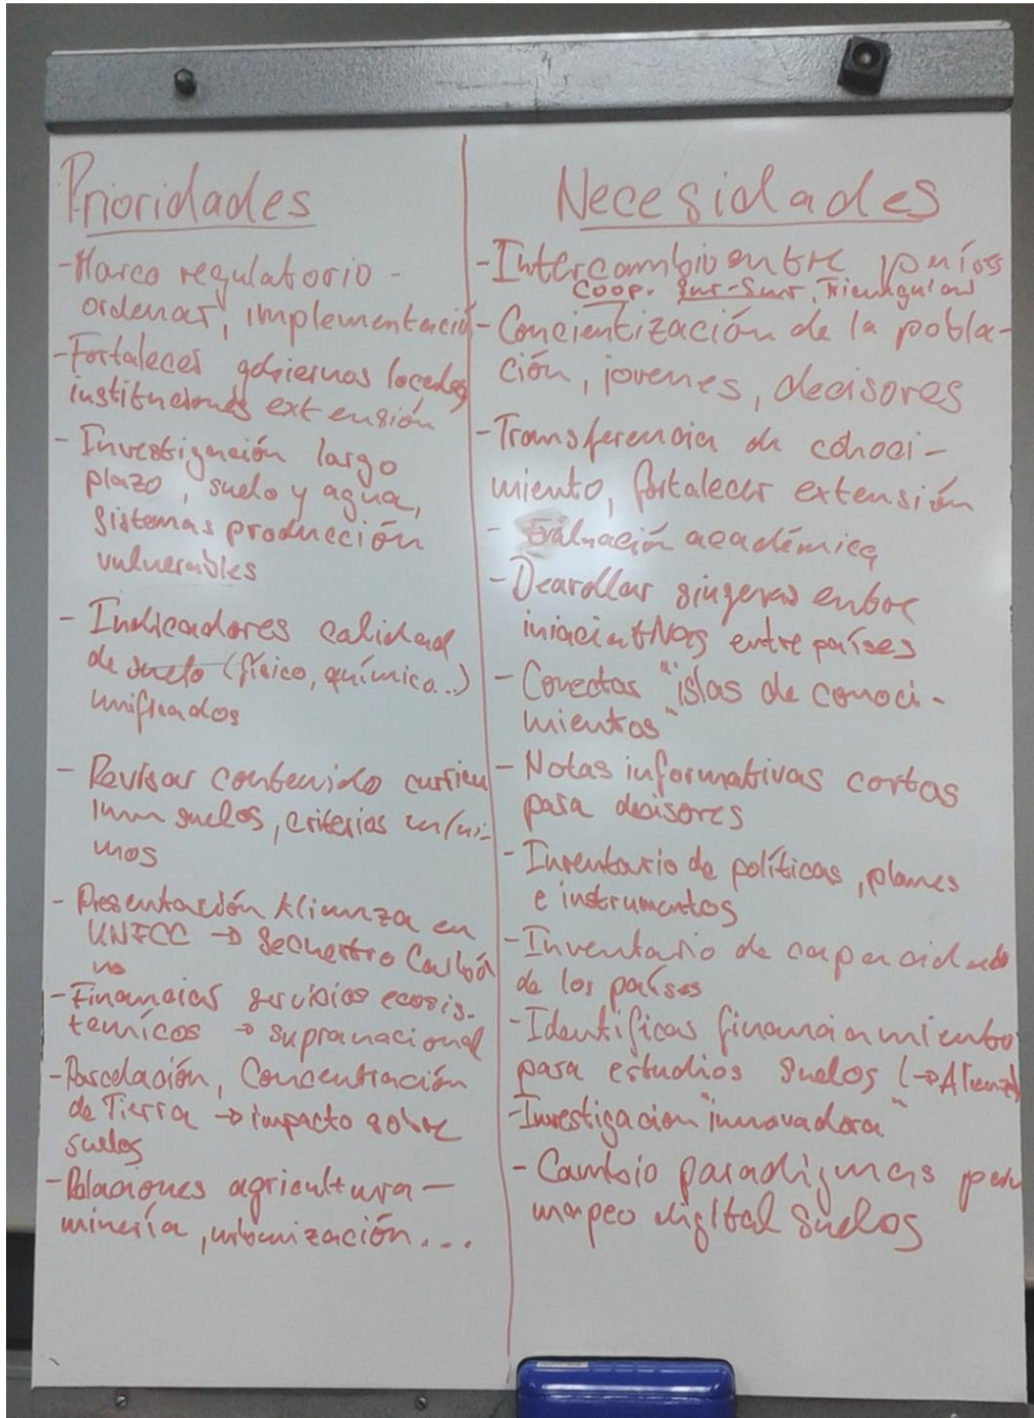 Prioridades
- Marco regulatorio -
ordenar, implementació
- Fortaleces gobiernos locales
instituciones extensión
- Investigación largo
plazo, suelo y agua,
sistemas producción
vulnerables
- Indicadores calidad
de suelo (físico, químico..)
unificados
- Revisar contenido curricu
lum suelos, criterios míni-
mos
- Presentación Alianza en
UNFCC → Secuestro Carbó
no
- Financias servicios ecosis-
temícos → supranacional
- Parcelación, Concentración
de Tierra → impacto sobre
suelos
- Relaciones agricultura -
minería, urbanización...
Necesidades
- Intercambio entre países
Coop. Sur-Sur, Triangular
- Concientización de la pobla-
ción, jovenes, decisores
- Transferencia de conoci-
miento, fortalecer extensión
- Evaluación académica
- Dearollar sinergias entre
entre países
- Conectas "islas de conoci-
mientos"
- Notas informativas cortas
para decisores
- Inventario de políticas, planes
e instrumentos
- Inventario de capacidades
de los países
- Identificas financiamiento
para estudios suelos (→Alianza)
- Investigacion "innovadora"
- Cambio paradigmas para
mapeo digital suelos